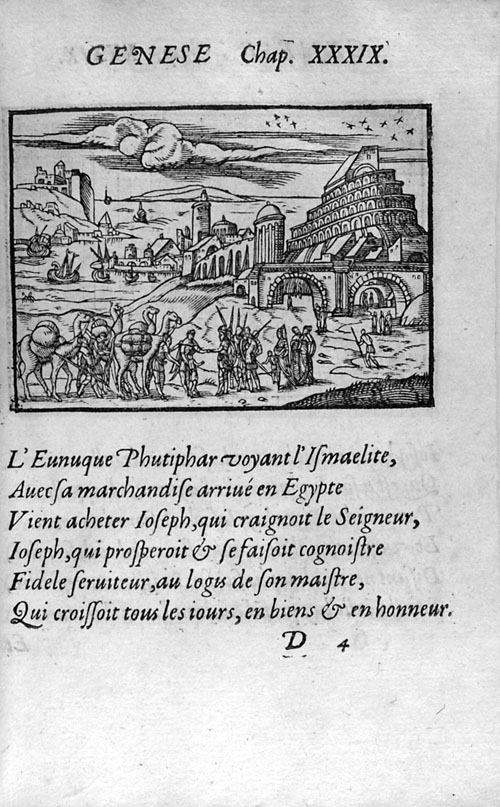 GENESE Chap. XXXIX.
L'Eunuque Phutiphar voyant l'Iſmaelite,
Auec ſa marchandiſe arriué en Egypte
Vient acheter Ioſeph, qui craignoit le Seigneur,
Ioſeph, qui proſperoit & ſe faiſoit cognoiſtre
Fidele ſeruiteur, au logis de ſon maiſtre,
Qui croiſſoit tous les iours, en biens & en honneur.
D 4